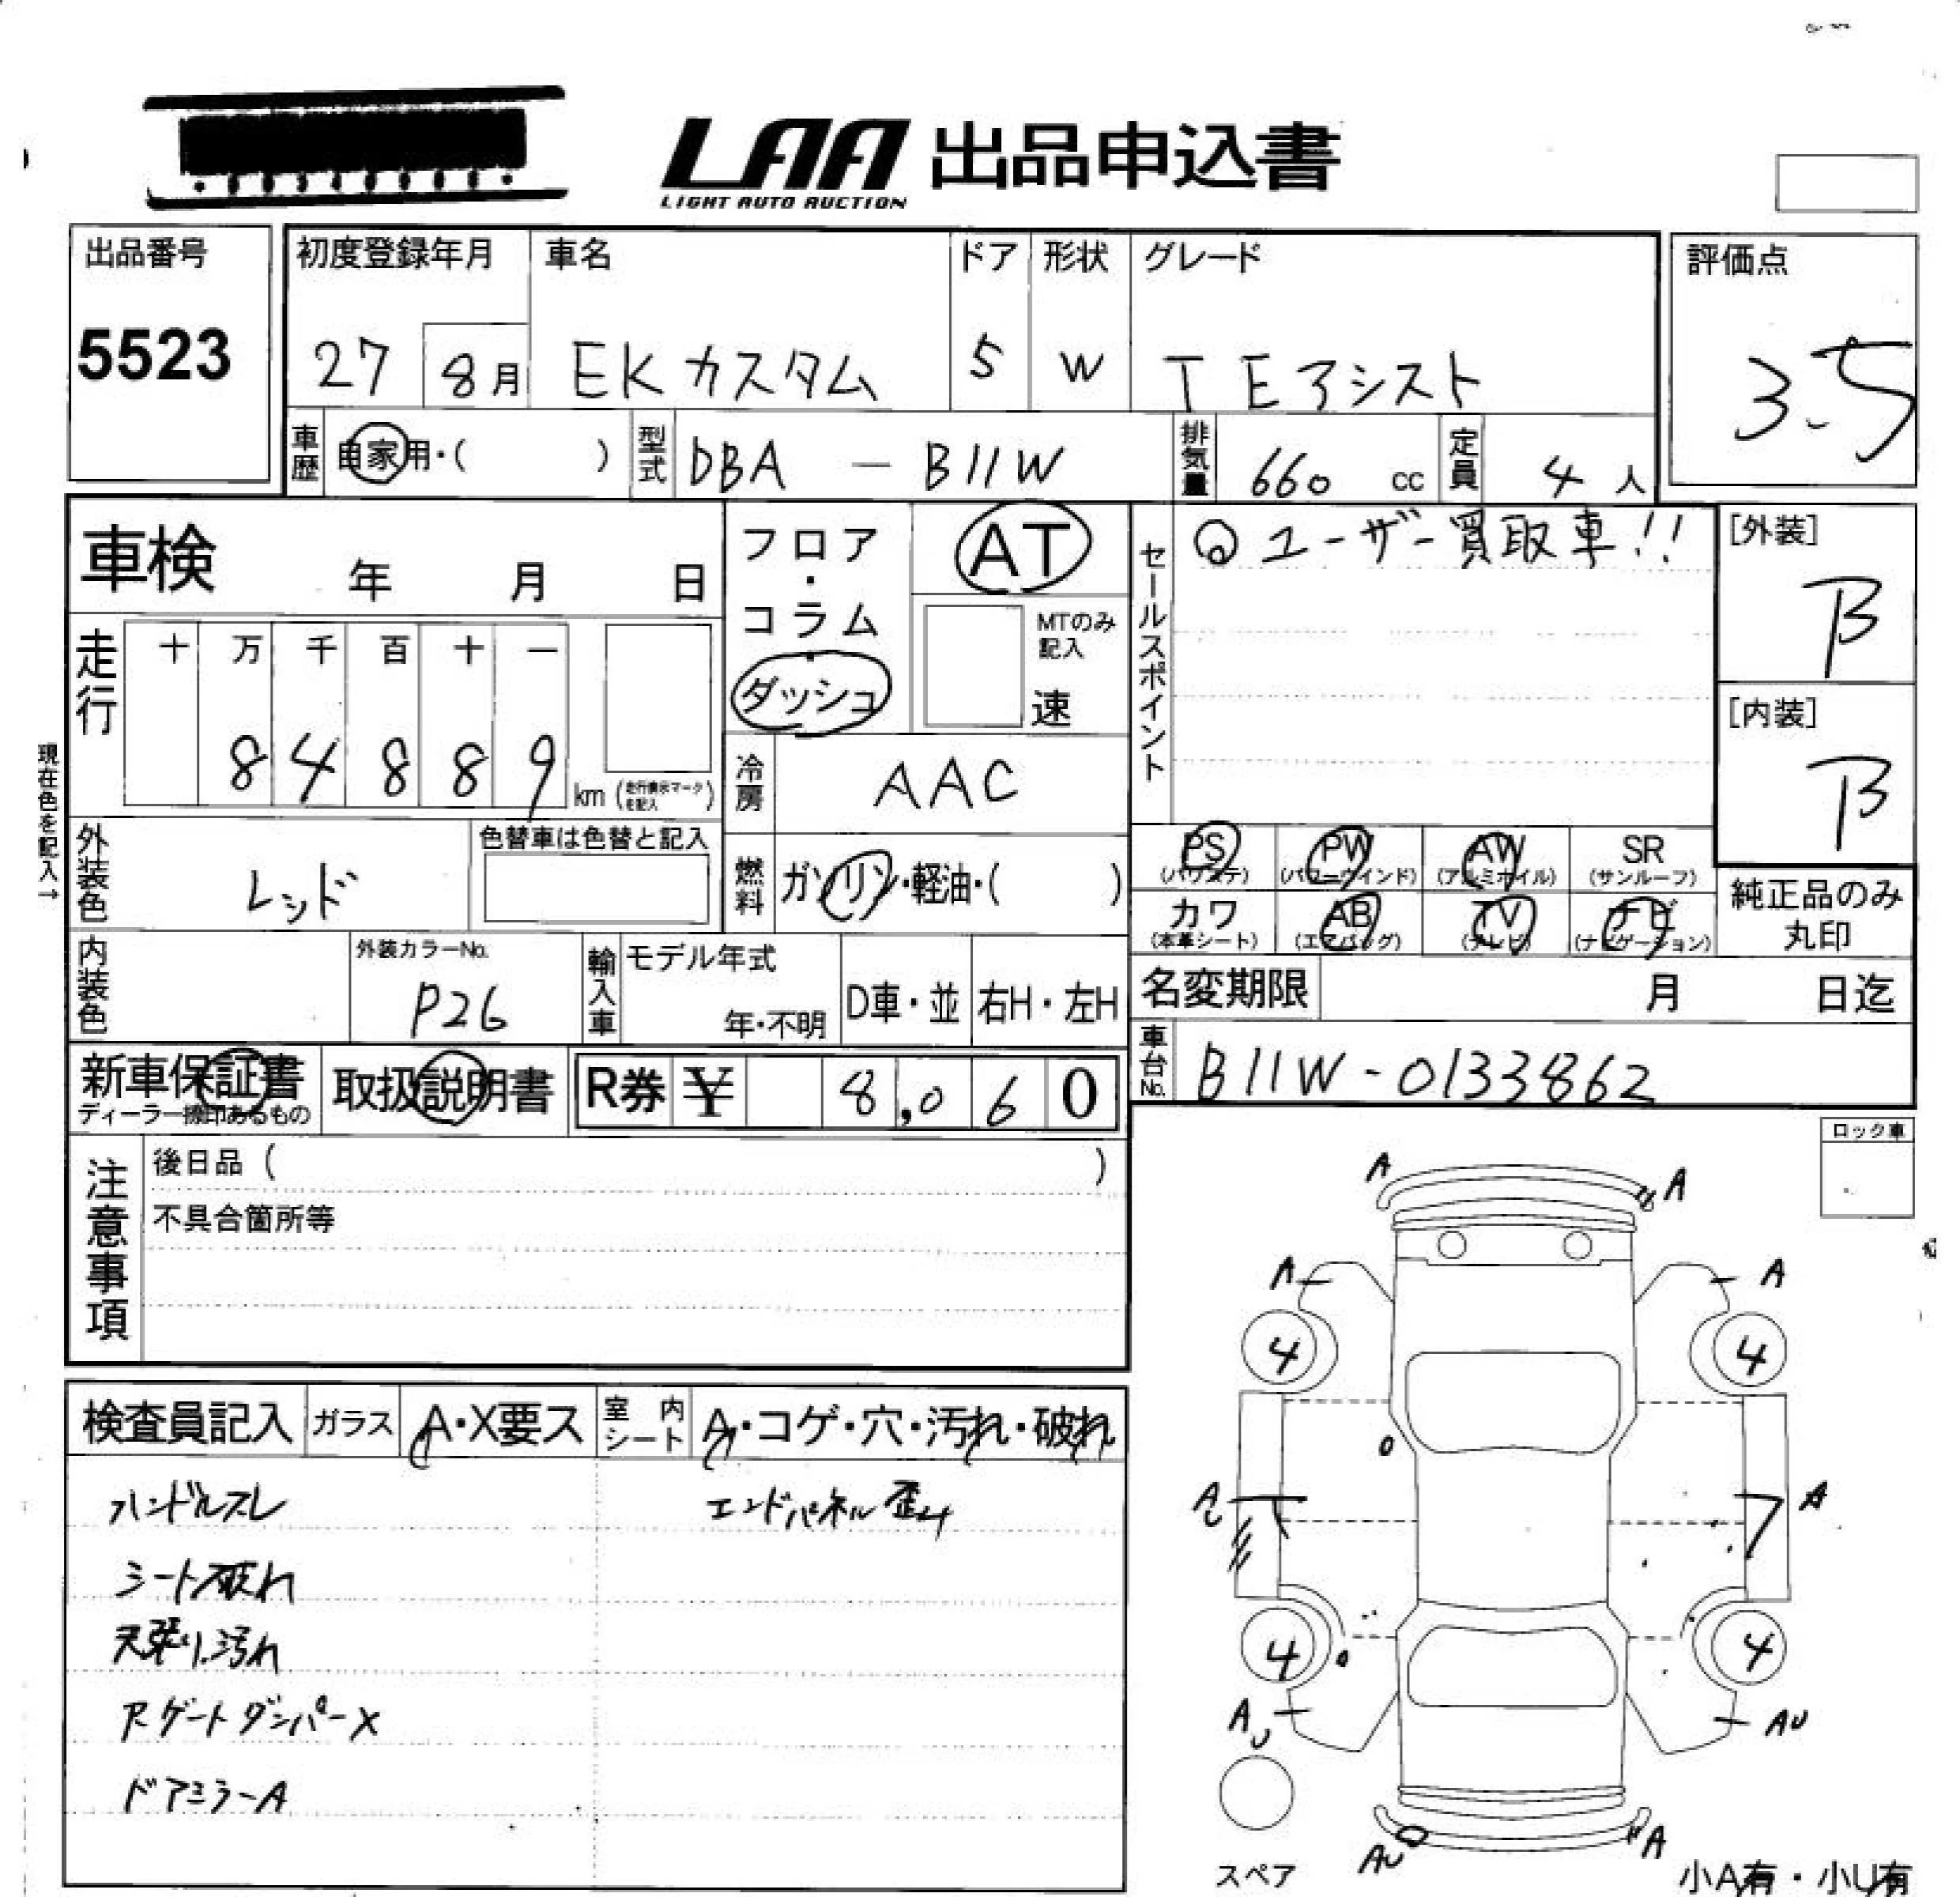 LAA 出品申込書
LIGHT AUTO AUCTION
出品番号 初度登録年月 車名 ドア 形状 グレード 評価点
5523 27 8月 EKカスタム 5 W T Eアシスト 3.5
車歴 自家用・( ) 型式 DBA - B11W 排気量 660 cc 定員 4 人
車検 年 月 日
フロア・コラム・ダッシュ
AT
MTのみ記入
速
セールスポイント
◎ユーザー買取車!!
[外装]
B
[内装]
B
走行 十 万 千 百 十 一
8 4 8 8 9 km (走行表示マークを記入)
冷房 AAC
現在色を記入→
外装色 レッド 色替車は色替と記入
燃料 ガソリン・軽油・( )
PS (パワステ) PW (パワーウインド) AW (アルミホイル) SR (サンルーフ)
カワ (本革シート) AB (エアバッグ) TV (テレビ) ナビ (ナビゲーション)
純正品のみ
丸印
内装色 外装カラーNo. P26 輸入車 モデル年式 年・不明 D車・並 右H・左H
名変期限 月 日迄
新車保証書 取扱説明書 R券 ¥ 8,060
ディーラー捺印あるもの
車台No. B11W-0133862
注意事項
後日品 ( )
不具合箇所等
ロック車
検査員記入 ガラス A・X要ス 室内シート A・コゲ・穴・汚れ・破れ
ハンドルスレ エンドパネル歪ム
シート破れ
天張り汚れ
Rゲートダンパー X
ドアミラーA
A A
A A
4 4
A A
4 4
AU AU
スペア AU A
小A有・小U有